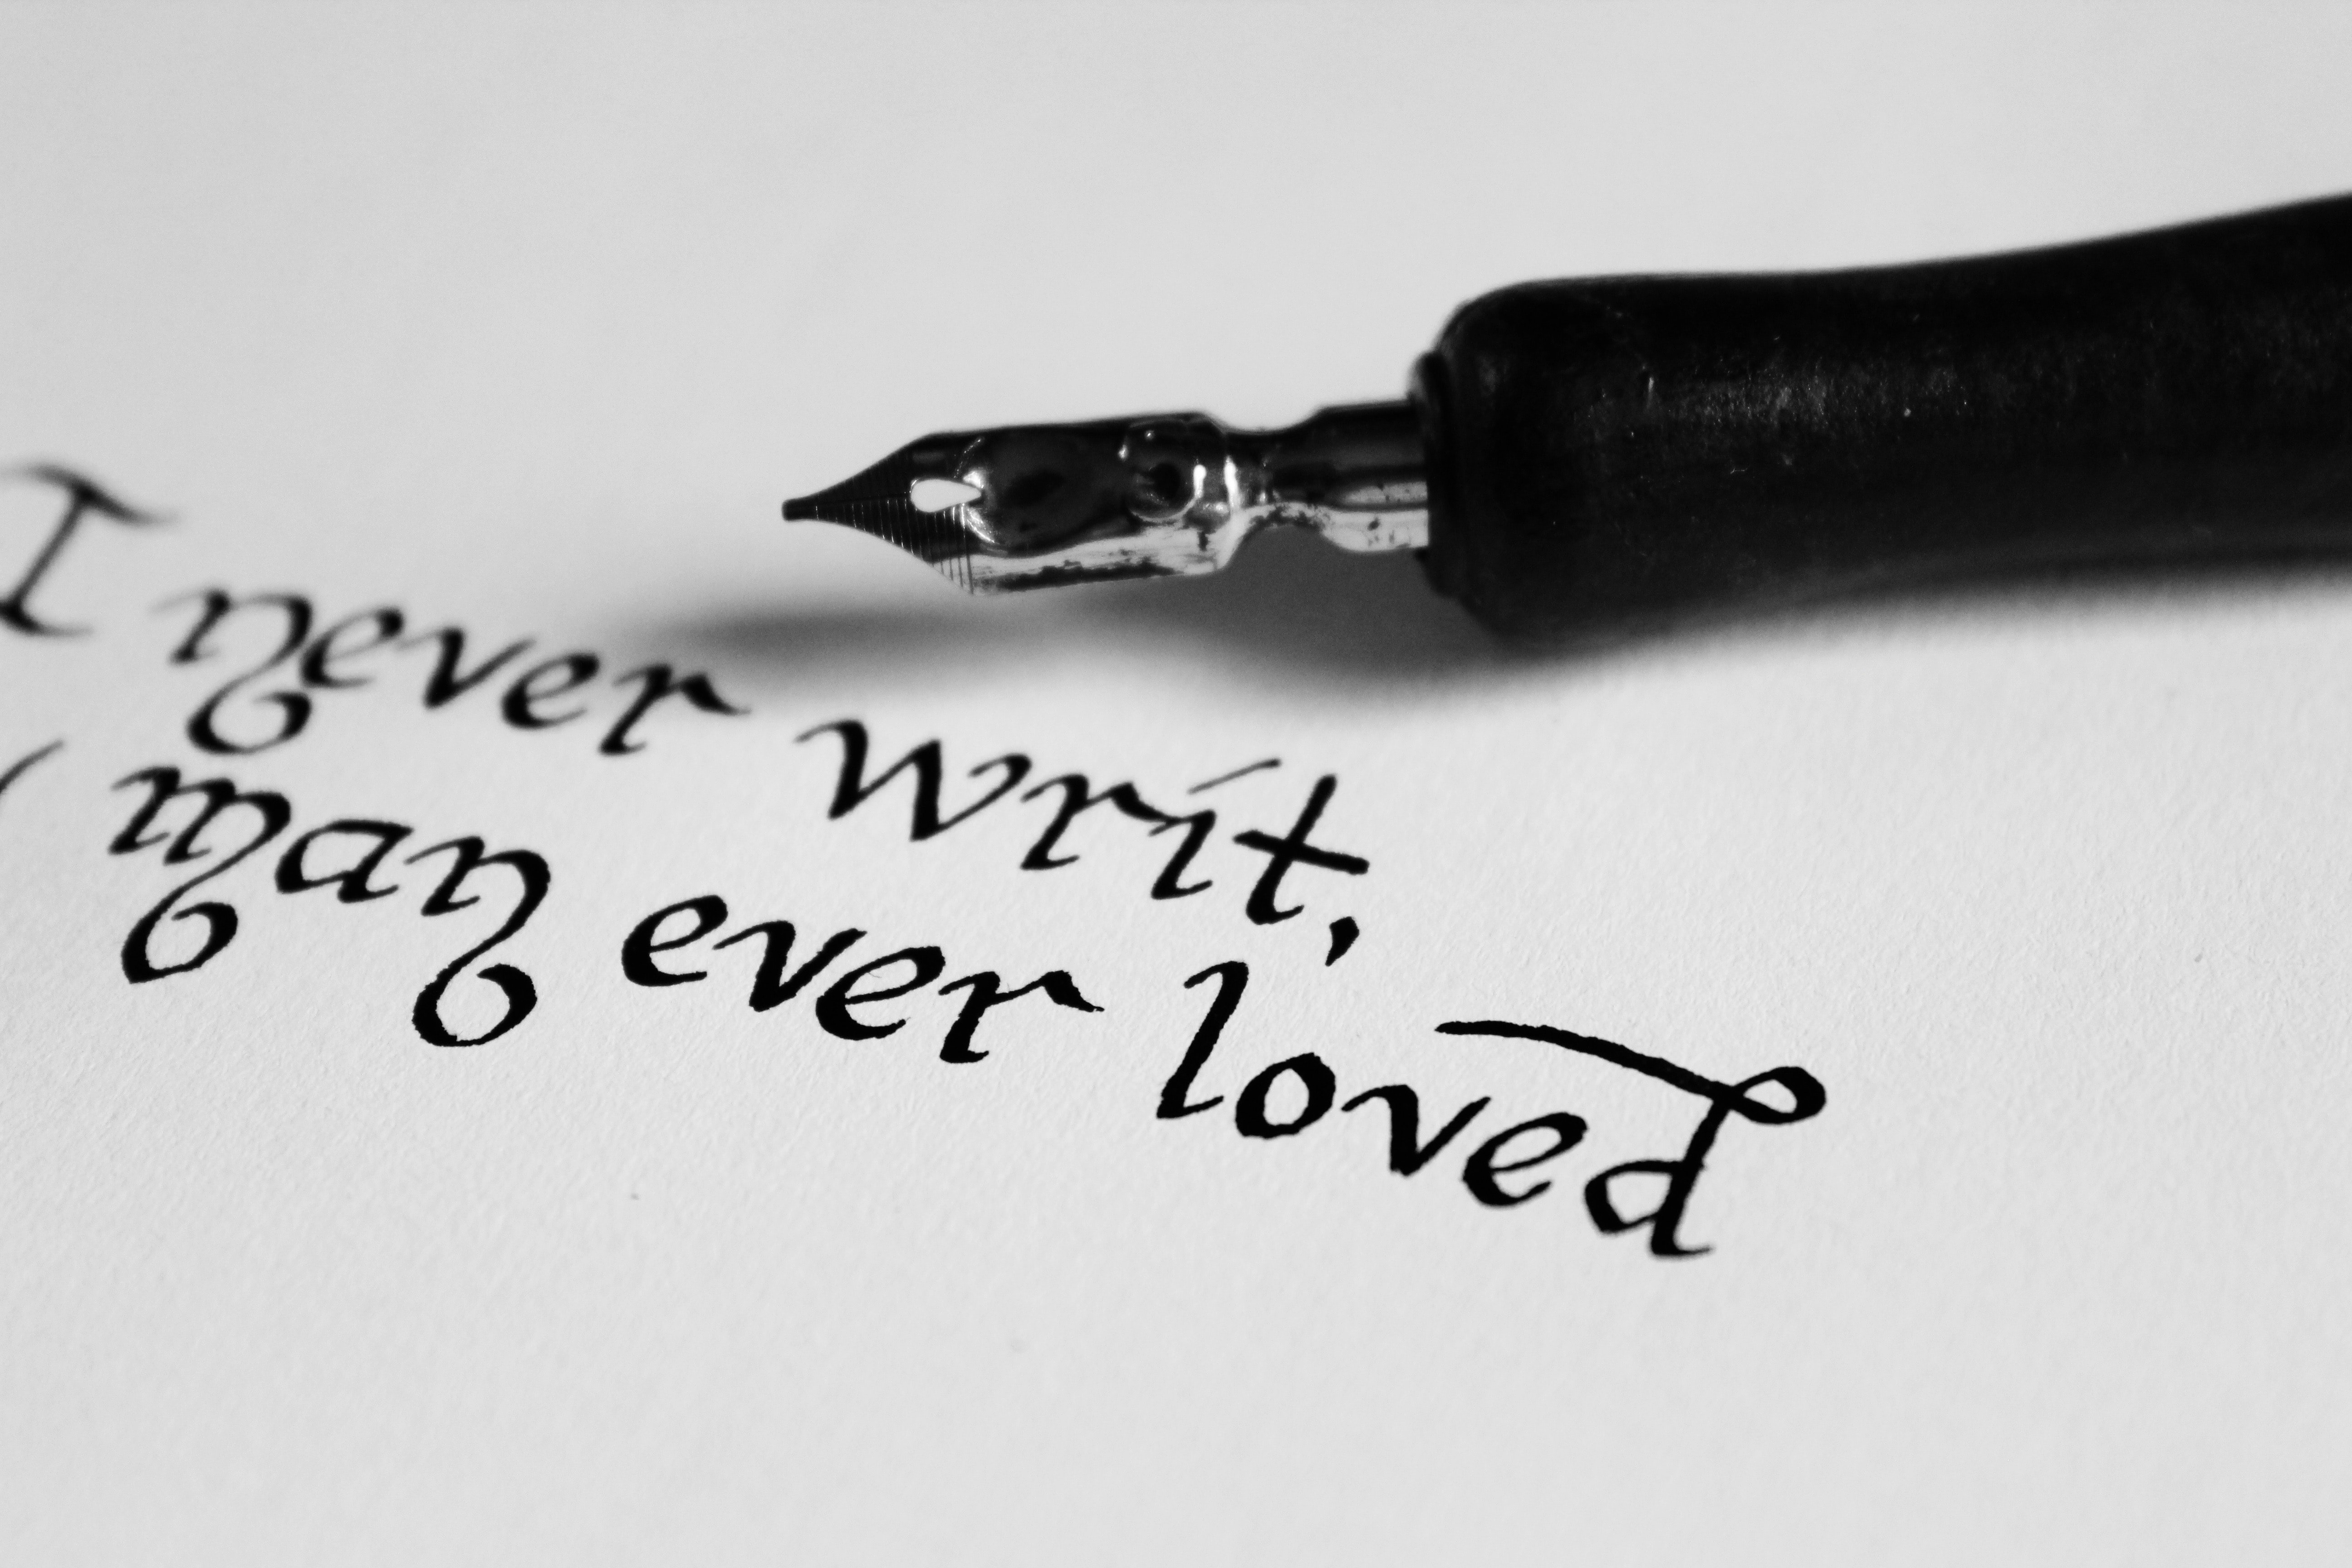 I never writ,
man ever loved